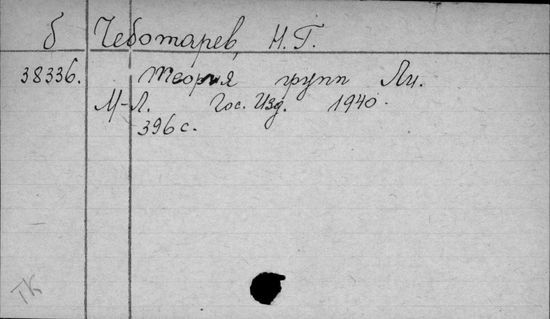 б Чеботарев, Н.Г.
38336. Теория групп Ли.
М-Л. Гос. Изд. 1940.
396 с.
ТК